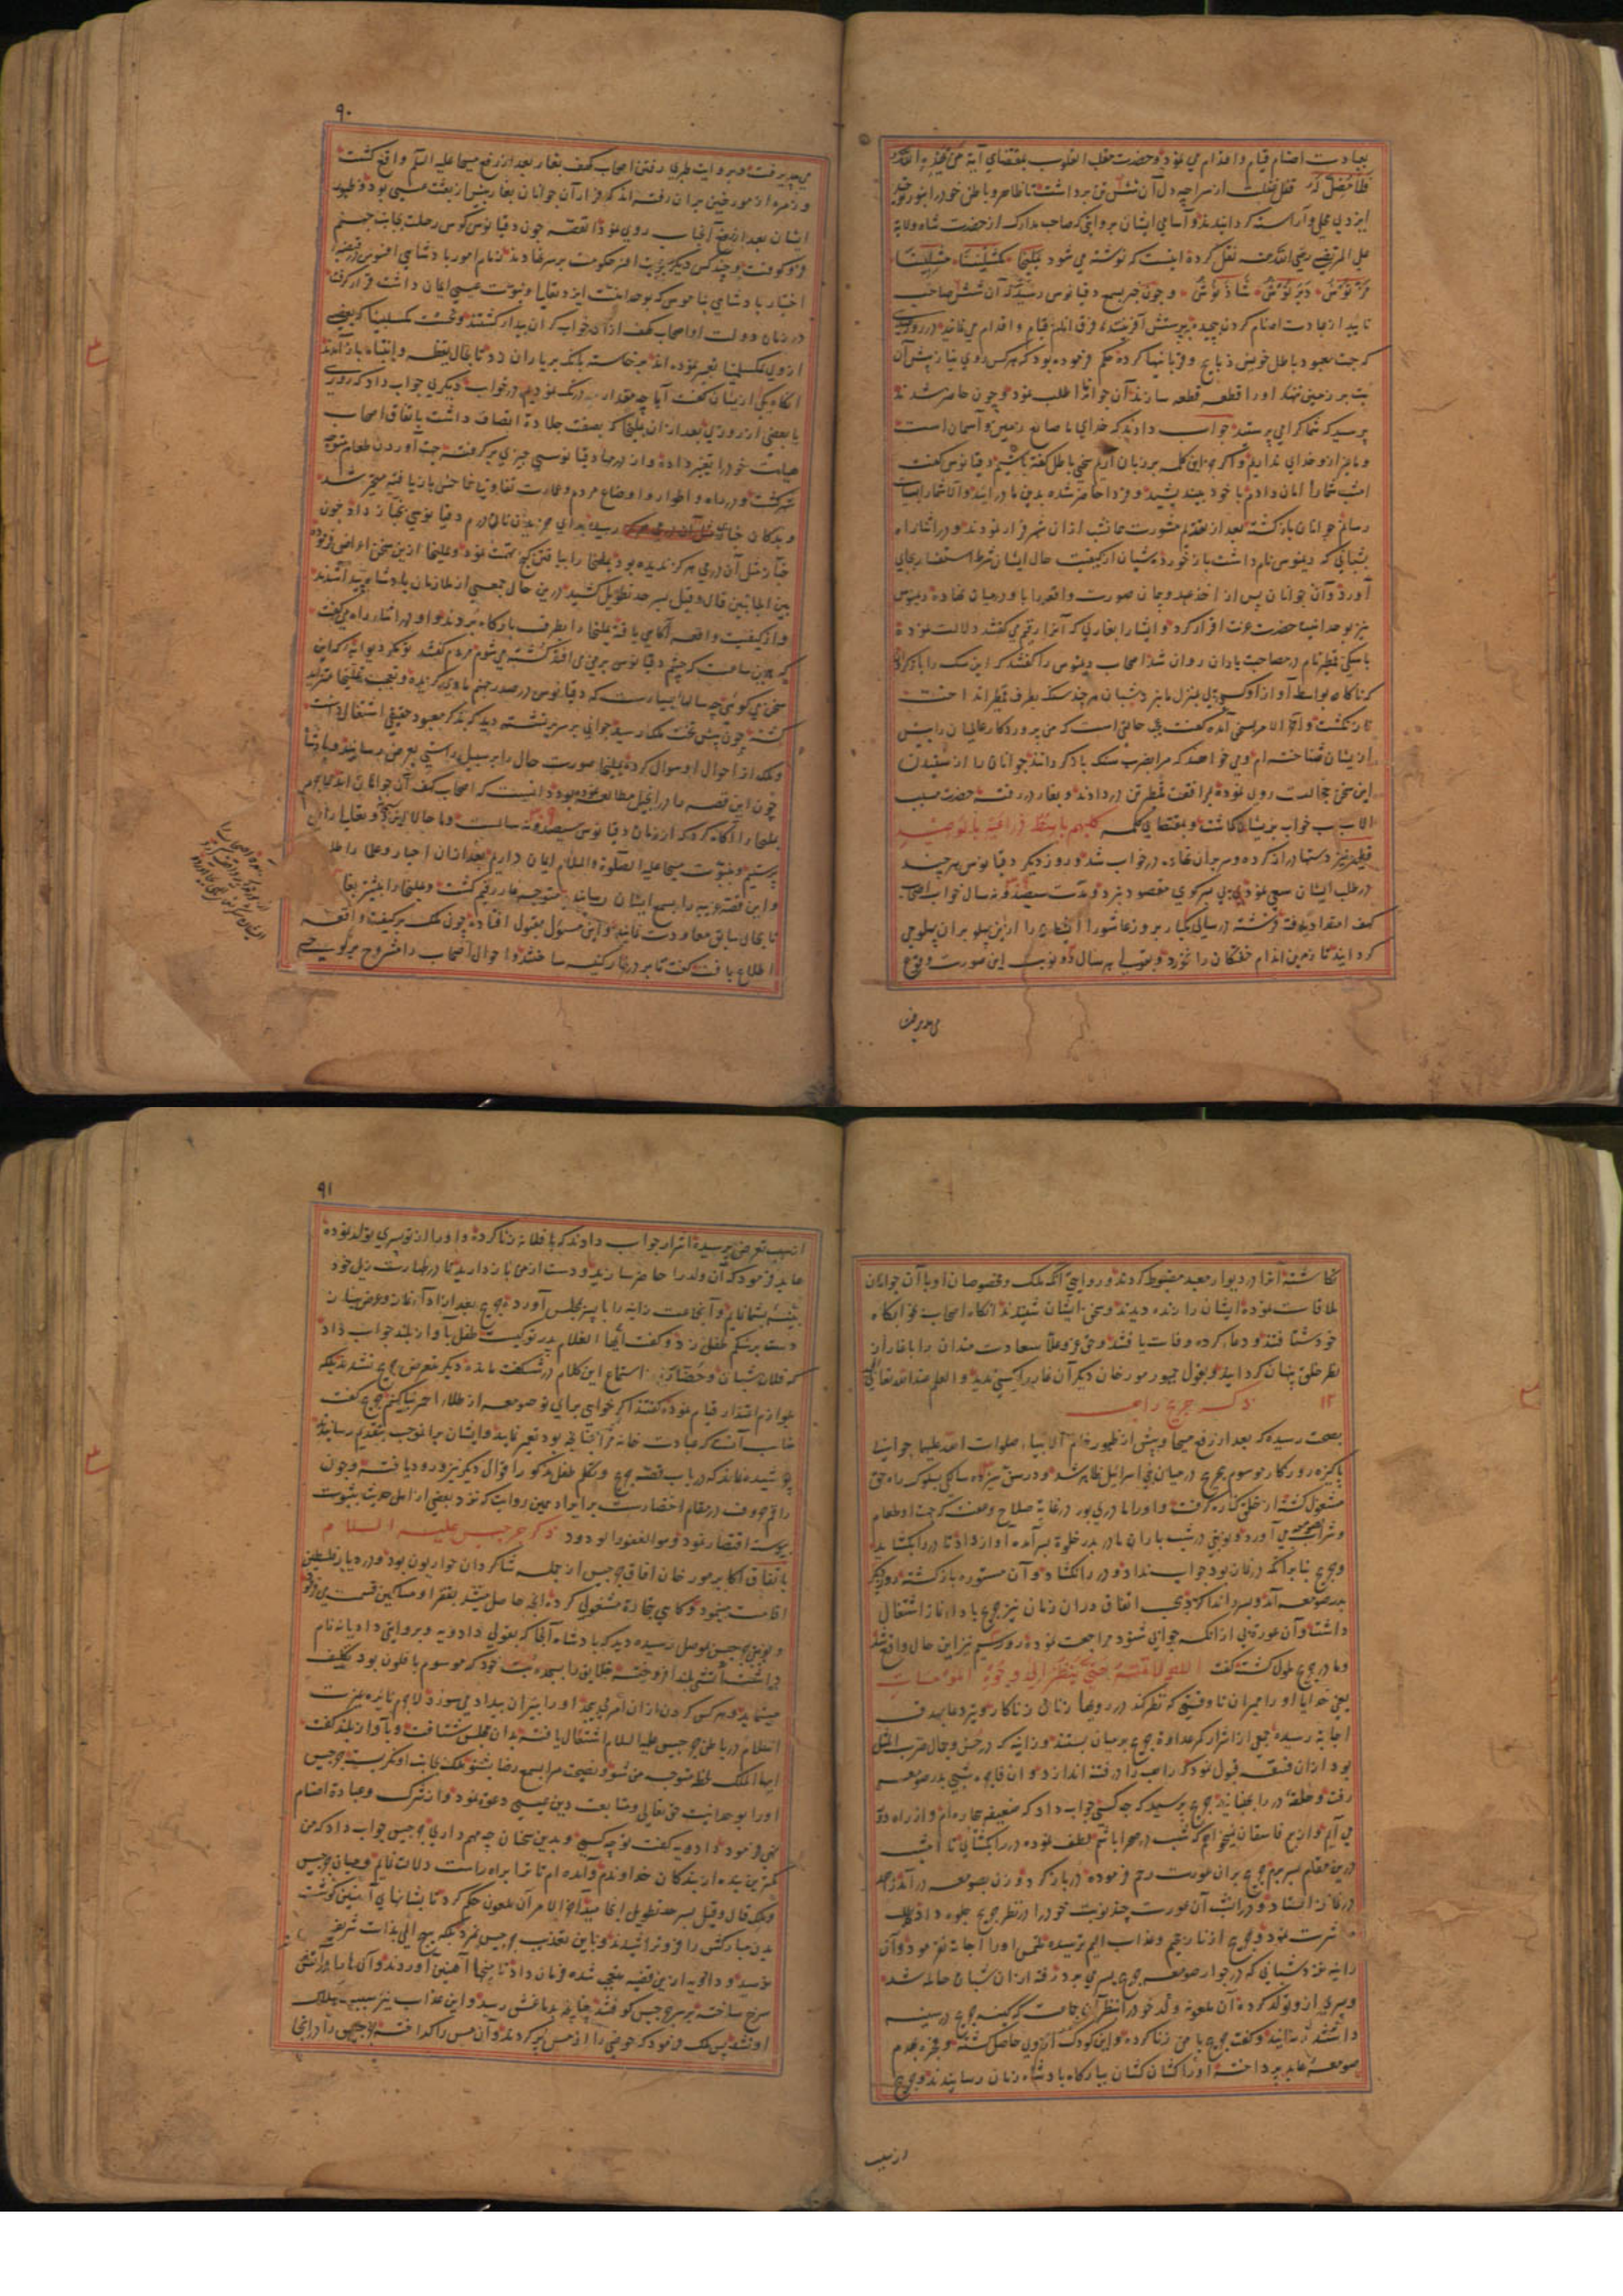 بعبادت اصنام قیام و اقدام می نمود و حضرت مقلب القلوب بمقتضای آیه من یهد الله
فلا مضل له قفل غفلت از سراچه دل آن شش تن برداشت تا ظاهر و باطن خود را بنور توحید
ایزدی محلی و آراسته کردانیدند و اسامی ایشان بروایتی که صاحب مدارک از حضرت شاه ولایة
علی المرتضی رضی الله عنه نقل کرده اینست که نوشته می شود یملیخا مکشلینا مشلینا
مرنوش دبرنوش شاذنوش و چون خبر بسمع دقیانوس رسید که آن شش صاحب
تایید از عبادت اصنام کردن پیچیده بپرستش آفریننده فرق انام قیام و اقدام می نمایند در روزی
که جهت معبود باطل خویش ذبایح و قربانیها کرده حکم فرموده بود که هر کس روی نیاز پیش آن
بت بر زمین ننهد او را قطعه قطعه سازند آن جوانانرا طلب نمود و چون حاضر شدند
پرسید که شما کرا می پرستید جواب دادند که خدای ما صانع زمین و آسمان است
و ما بجز او خدای نداریم و اگر جز این کلمه بر زبان آریم سخن باطل گفته باشیم دقیانوس گفت
امشب شما را امان دادم با خود بیندیشید و فردا حاضر شده بدین ما در آیید و الا شما را بسیاست
رسانم جوانان بازگشته بعد از تقدیم مشورت همانشب از ان شهر فرار نمودند و در اثنا راه
بشبانی که دینوس نام داشت باز خوردند شبان از کیفیت حال ایشان شرط استفسار بجای
آورد و آن جوانان پس از اخذ عهد و پیمان صورت واقعه را با او در میان نهادند دینوس
نیز بوحدانیت حضرت عزت اقرار کرد و ایشانرا بغاری که آنرا رقیم می گفتند دلالت نموده
با سگی قطمیر نام در مصاحبت یاران روان شد اصحاب دینوس را گفتند که این سگ را باز گردان
که ناگاه بواسطه آواز او کسی پی بمنزل ما نبرد شبان هر چند سنگ بطرف قطمیر انداخت
باز نگشت و آخر الامر بسخن آمده گفت چه حالتی است که من پروردگار عالمیان را پیش
از ایشان شناخته ام و می خواهند که مرا بضرب سنگ باز گردانند جوانان را از شنیدن
این سخن خجالت روی نموده بمرافقت قطمیر تن در دادند و بغار در رفته حضرت مسبب
الاسباب خواب بر ایشان گماشت و بمقتضای کلمه کلبهم باسط ذراعیه بالوصید
قطمیر نیز دستها دراز کرده و سر بر آن نهاده در خواب شد و روز دیگر دقیانوس هر چند
در طلب ایشان سعی نمود پی بسر کوی مقصود نبرد و مدت سیصد و نه سال خواب اصحاب
کهف امتداد یافته فرشته در سالی یکبار بروز عاشورا ایشان را از این پهلو بر آن پهلو می
گردانید تا زمین اندام خفتگان را نخورد و بقولی هر سال دو نوبت این صورت وقوع
می پذیرفت
۹۰
می پذیرفت و بروایت طبری رفتن اصحاب کهف بغار بعد از رفع مسیحا علیه السلم واقع گشت
و زمره از مورخین بر آن رفته اند که فرار آن جوانان بغار پیش از بعثت عیسی بود و ظهور
ایشان بعد از رفع آنجناب روی نمود القصه چون دقیانوس کوس رحلت بجانب جهنم
فرو کوفت و چند کس دیگر بنوبت افسر حکومت بر سر نهادند زمام امور پادشاهی افسوس در قبضه
اختیار پادشاهی بناموس که بوحدانیت ایزد تعالی و نبوت عیسی ایمان داشت قرار گرفت
در زمان دولت او اصحاب کهف از آن خواب گران بیدار گشتند و نخست مکسلینا که بعضی
از وی بمکسلمینا تعبیر نموده اند برخاسته بانگ بر یاران زد تا بحال یقظه و انتباه باز آمدند
آنگاه یکی از ایشان گفت آیا چه مقدار درنگ نمودیم در خواب دیگری جواب داد که روزی
یا بعضی از روزی بعد از ان یملیخا که بصفت جلادة اتصاف داشت باتفاق اصحاب
هیأت خود را تغییر داده و از درهم دقیانوسی چیزی برگرفته جهت آوردن طعام متوجه
شهر گشت و در راه و اطوار و اوضاع مردم و عمارت تفاوت فاحش باز یافته متحیر شد
و بدکان خبازی رسیده برای خریدن نان درم دقیانوسی بخباز داد چون
خباز مثل آن درمی هرگز ندیده بود یملیخا را بیافتن گنج تهمت نمود و یملیخا از این سخن اعراض فرموده
بین الجانبین قال و قیل بسرحد تطویل کشید در این حال جمعی از ملازمان پادشاه پیدا شدند
و از کیفیت واقعه آگاهی یافته یملیخا را بطرف بارگاه بردند و او در اثنا راه می گفت
که همین ساعت که چشم دقیانوس بر من می افتد کشته می شوم مردم گفتند تو مگر دیوانه که این
سخن می گوئی چه سالهای بسیارست که دقیانوس در صدر جهنم ماوی گزیده و تعجب یملیخا متزاید
گشته چون پیش تخت ملک رسید جوانی بر سریر نشسته دید که بذکر معبود حقیقی اشتغال داشت
و ملک از احوال او سوال کرده یملیخا صورت حال را بر سبیل راستی بعرض رسانید و پادشاه
چون این قصه را در انجیل مطالعه نموده بود دانست که اصحاب کهف آن جوانان اند لاجرم
یملیخا را آگاه کرد که از زمان دقیانوس سیصد و نه سالست و ما حالا ایزد سبحانه و تعالی را می
پرستیم و بنبوت مسیحا علیه الصلوة و السلام ایمان داریم بعد از ان احبار و علما را طلب
و این قصه غریبه را بسمع ایشان رسانید متوجه غار رقیم گشت و یملیخا را پیشتر بغار
تا بحال سابق معاودت نمایند و این مسؤل بقبول افتاده چون ملک بر کیفیت واقعه
اطلاع یافت گفت تا بر در غار کنیسه ساختند و احوال اصحاب را مشروح بر لوحی
نگاشته آنرا در دیوار معبد مضبوط کردند و روایتی آنکه ملک و مخصوصان او با آن جوانان
ملاقات نموده ایشان را زنده دیدند و سخن ایشان شنیدند آنگاه اصحاب بخوابگاه
خود شتافتند و دعا کرده وفات یافتند و حق عز و علا سعادت مندان را با غار از
نظر خلق پنهان گردانید و بقول جمهور مورخان دیگر آن غار را کسی ندید و العلم عند الله تعالی
۱۲ ذکر جریج راهب
بصحت رسیده که بعد از رفع مسیحا و پیش از ظهور خاتم الانبیاء صلوات الله علیهما جوانی
پاکیزه روزگار موسوم بجریج در میان بنی اسرائیل ظاهر شد و در سن سیزده سالگی بسلوک راه حق
مشغول گشته از خلق کناره گرفت و او را مادری بود در غایة صلاح و عفت که جهت او طعام
و شراب بصومعه می آورد و نوبتی در شب باران مادر بدر خلوة پسر آمده آواز داد تا در را بگشاید
و جریج بنابر آنکه در نماز بود جواب نداد و در را نگشاد و آن مستوره بازگشته روز دیگر
بدر صومعه آمد و پسر را ندا کرد بحسب اتفاق در آن زمان نیز جریج باداء نماز اشتغال
داشت و آن عورة بی از آنکه جوابی شنود مراجعت نموده روز سیم نیز این حال واقع شد
و مادر جریج ملول گشته گفت اللهم لا تمته حتی ینظر الی وجوه المومسات
یعنی خدایا او را ممیران تا وقتی که نظر کند در رویها زنان زناکار و تیر دعا بهدف
اجابة رسیده جمعی از اشرار کمر عداوة جریج بر میان بستند و زانیه که در حسن و جمال ضرب المثل
بود از ان فسقه قبول نمود که راهب را در فتنه اندازد و آن فاجره شبی بدر صومعه
رفت و حلقه در را بجنبانید جریج پرسید که چه کسی جواب داد که ضعیفه بیچاره ام و از راه دور
می آیم و از بیم فاسقان نمیخواهم که شب در صحرا باشم لطف نموده در را بگشای تا امشب
در این مقام بسر برم جریج بر آن عورت رحم فرموده در باز کرد و زن بصومعه در آمد و جریج
در نماز ایستاد و در آن شب آن عورت چند نوبت خود را در نظر جریج جلوه داد طلب
مباشرت نمود و جریج از نار جحیم و عذاب الیم ترسیده ملتمس او را اجابة نفرمود و آن
زانیه نزد شبانی که در جوار صومعه جریج بسر می برد رفته از ان شبان حامله شد
و پسری از او تولد کرده آن ملعونه ولد خود را بنظر آن جماعت که کینه جریج در سینه
داشتند رسانید و گفت جریج با من زنا کرده و این کودک از وی حاصل گشته و فجره بهدم
صومعه عابد پرداخته او را کشان کشان ببارگاه پادشاه زمان رسانیدند و جریج
از سبب
۹۱
از سبب تعرض پرسیده اشرار جواب دادند که با فلانه زنا کرده و او را از تو پسری تولد نموده
عابد فرمود که آن ولد را حاضر سازید و دست از من باز دارید تا در طهارت ذیل خود
بینه بنمایم و آنجماعت زانیه را با پسر بمجلس آورده جریج بعد از اداء نماز و عرض نیاز
دست بر شکم طفل زد و گفت ایها الغلام پدر تو کیست طفل بآواز بلند جواب داد
که فلان شبان و حضار از استماع این کلام در شگفت مانده دیگر متعرض جریج نشدند بلکه
بلوازم اعتذار قیام نموده گفتند اگر خواهی برای تو صومعه از طلاء احمر بنا کنیم جریج گفت
مناسب آنست که عبادت خانه مرا چنانچه بود تعمیر نمایید و ایشان برانموجب بتقدیم رسانیدند
پوشیده نماند که در باب قصه جریج و تکلم طفل مذکور اقوال دیگر نیز ورود یافته و چون
راقم حروف در مقام اختصار ست بر ایراد همین روایت که نزد بعضی از اهل حدیث بثبوت
پیوسته اقتصار نمود و هو الغفور الودود ذکر جرجیس علیه السلام
باتفاق اکابر مورخان آفاق جرجیس از جمله شاگردان حواریون بود و در دیار فلسطین
اقامت مینمود و گاهی بتجارة مشغولی کرده آنچه حاصل میشد بفقرا و مساکین قسمت می فرمود
و نوبتی جرجیس بموصل رسیده دید که پادشاه آنجا که بقولی دادویه و بروایتی دادیانه نام
داشت آتشی بلند افروخته خلایق را بسجده بت خود که موسوم بافلون بود تکلیف
مینماید و هر کس گردن از ان امر می پیچد او را بنیران بیداد می سوزد لاجرم نایره غیرت
اسلام در باطن جرجیس علیه السلام اشتعال یافته بدان مجلس شتافت و بآواز بلند گفت
ایها الملک لحظه متوجه من شو و نصیحت مرا بسمع رضا بشنو ملک بجانب او نگریسته جرجیس
او را بوحدانیت حق تعالی و متابعت دین عیسی دعوة نمود و از شرک و عبادة اصنام
نهی فرمود دادویه گفت تو چه کسی و بدین سخنان چه مهم داری جرجیس جواب داد که من
کمترین بنده از بندگان خداوندم و آمده ام تا ترا براه راست دلالت نمایم و میان جرجیس
و ملک قال و قیل بسرحد تطویل انجامید آخر الامر آن ملعون حکم کرد تا بشانهای آهنین گوشت
بدن مبارکش را فرو تراشیدند و باین تعذیب جرجیس نمرد بلکه هیچ المی بذات شریفش
نرسید و دادویه از این قضیه متعجب شده فرمان داد تا میخها آهنین آوردند و آن را بآتش
سرخ ساخته بر سر جرجیس کوفتند چنانچه بدماغش رسید و این عذاب نیز سبب هلاک
او نشد پس ملک فرمود که حوضی را از مس پر کردند و آن مس را گداخته جرجیس را در آنجا